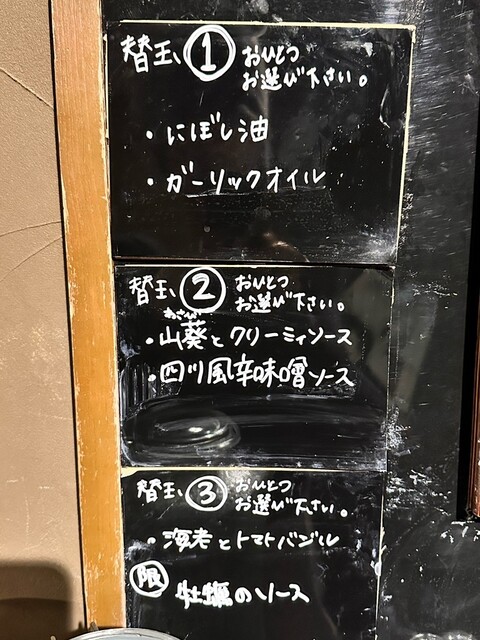 替玉、① おひとつ
お選び下さい。
・にぼし油
・ガーリックオイル
替玉、② おひとつ
お選び下さい。
わさび
・山葵とクリーミィソース
・四川風辛味噌ソース
替玉、③ おひとつ
お選び下さい。
・海老とトマトバジル
限 牡蠣のソース